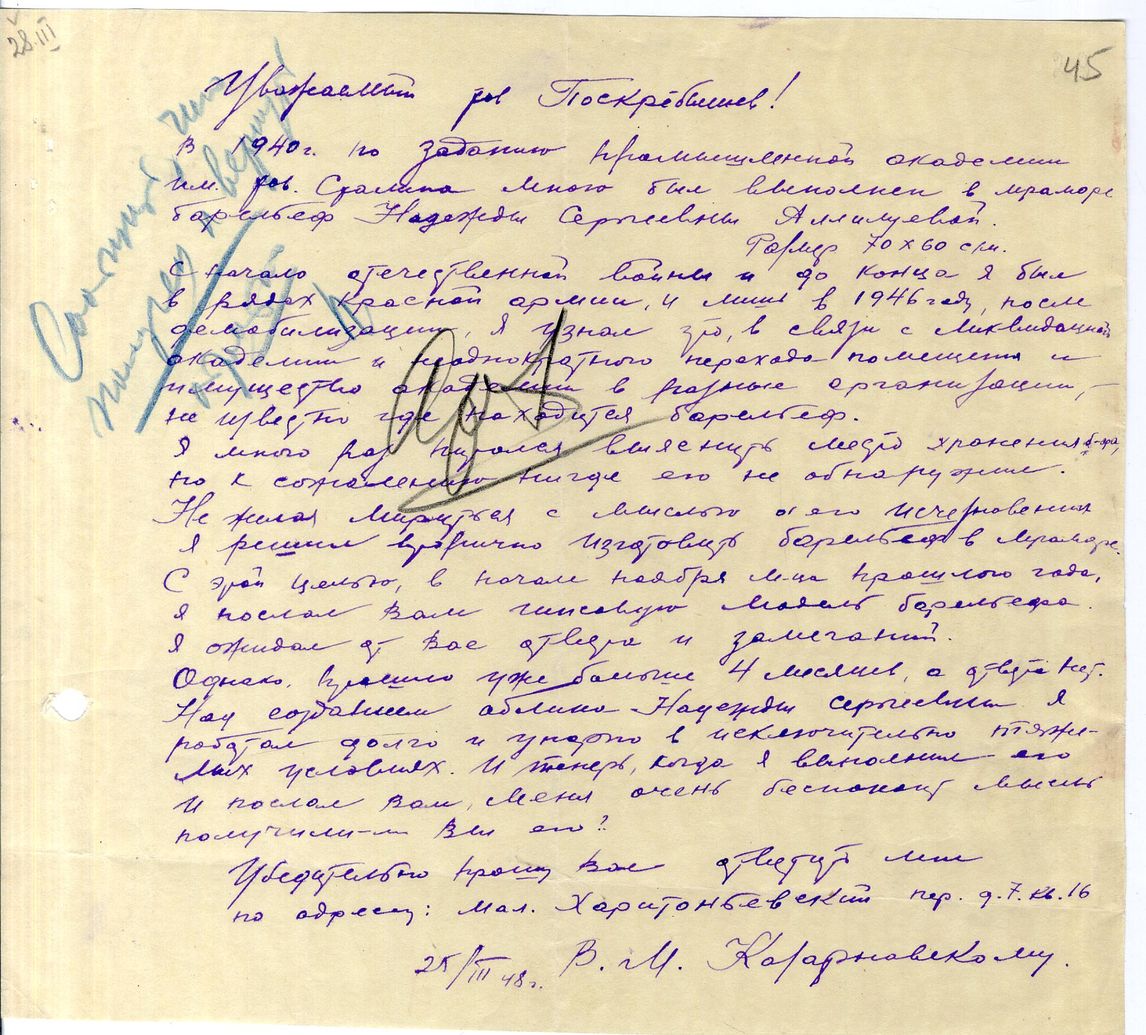 28.III
45
Уважаемый тов Поскрёбышев!
В 1940г. по заданию Промышленной академии
им. тов. Сталина мною был выполнен в мраморе
барельеф Надежды Сергеевны Аллилуевой.
Размер 70 x 60 стм.
С начало отечественной войны и до конца я был
в рядах Красной армии, и лишь в 1946 году, после
демобилизации, я узнал что, в связи с ликвидацией
академии и неоднократного перехода помещения и
имущество академии в разные организации, –
не известно где находится барельеф.
Я много раз пытался выяснить место хранения б-фа,
но к сожалению нигде его не обнаружил.
Не желая мириться с мыслью о его исчезновении
я решил вторично изготовить барельеф в мраморе.
С этой целью, в начале ноября м-ца прошлого года,
я послал Вам гипсовую модель барельефа.
Я ожидал от Вас ответа и замечаний.
Однако, прошло уже больше 4 месяцев, а ответа нет.
Над созданием облика Надежды Сергеевны я
работал долго и упорно в исключительно тяже-
лых условиях. И теперь, когда я выполнил его
и послал Вам, меня очень беспокоит мысль
получили-ли Вы его?
Убедительно прошу Вас ответить мне
по адресу: Мал. Харитоньевский пер. д. 7. кв. 16
25/III 48г. В. М.